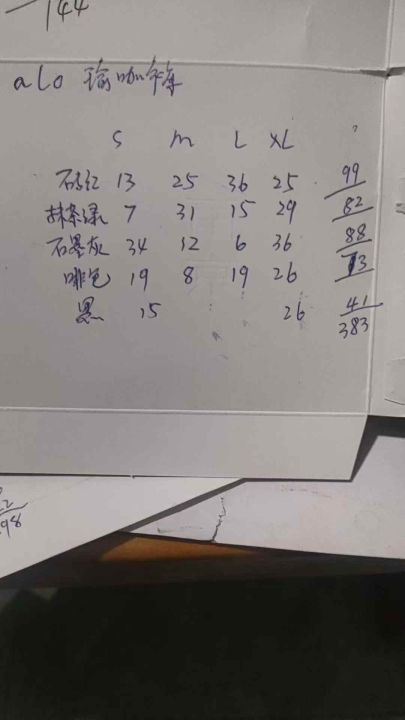 144
alo 瑜咖伞连
S M L XL
砖红 13 25 36 25 99
抹茶绿 7 31 15 29 82
石墨灰 34 12 6 36 88
啡色 19 8 19 26 73
黑 15 26 41
383
22
98